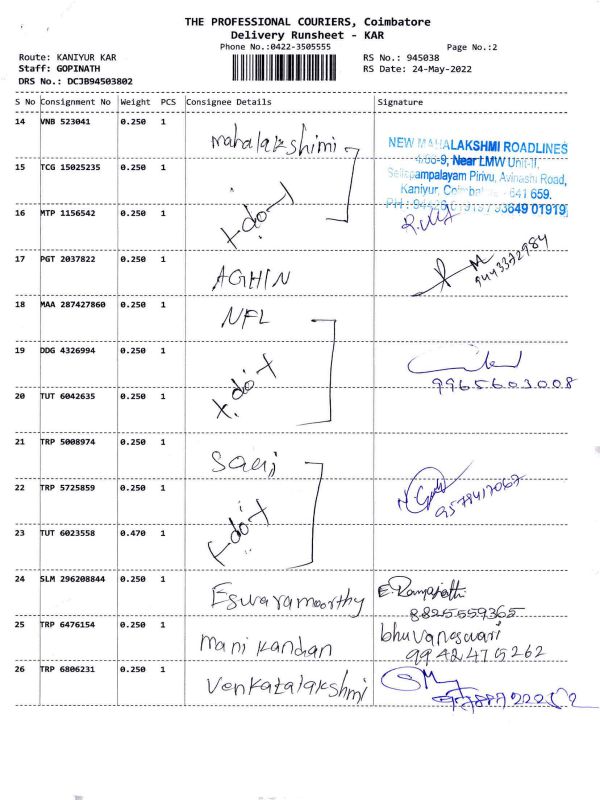 THE PROFESSIONAL COURIERS, Coimbatore
Delivery Runsheet - KAR
Phone No.:0422-3505555
Page No.:2
Route: KANIYUR KAR
RS No.: 945038
Staff: GOPINATH
RS Date: 24-May-2022
DRS No.: DCJB94503802
S No Consignment No Weight PCS Consignee Details Signature
14 VNB 523041 0.250 1 mahalakshimi
NEW MAHALAKSHMI ROADLINES
4/66-9, Near LMW Unit-II,
Sellappampalayam Pirivu, Avinashi Road,
Kaniyur, Coimbatore - 641 659.
PH : 93649 01919
15 TCG 15025235 0.250 1
16 MTP 1156542 0.250 1
17 PGT 2037822 0.250 1 AGHIN
9443372984
18 MAA 287427860 0.250 1 NFL
19 DDG 4326994 0.250 1
9965603008
20 TUT 6042635 0.250 1
21 TRP 5008974 0.250 1
22 TRP 5725859 0.250 1
9578417067
23 TUT 6023558 0.470 1
24 SLM 296208844 0.250 1 Eswaramoorthy
8825559365
25 TRP 6476154 0.250 1 Manikandan bhuvaneswari
9942475262
26 TRP 6806231 0.250 1 Venkatalakshmi